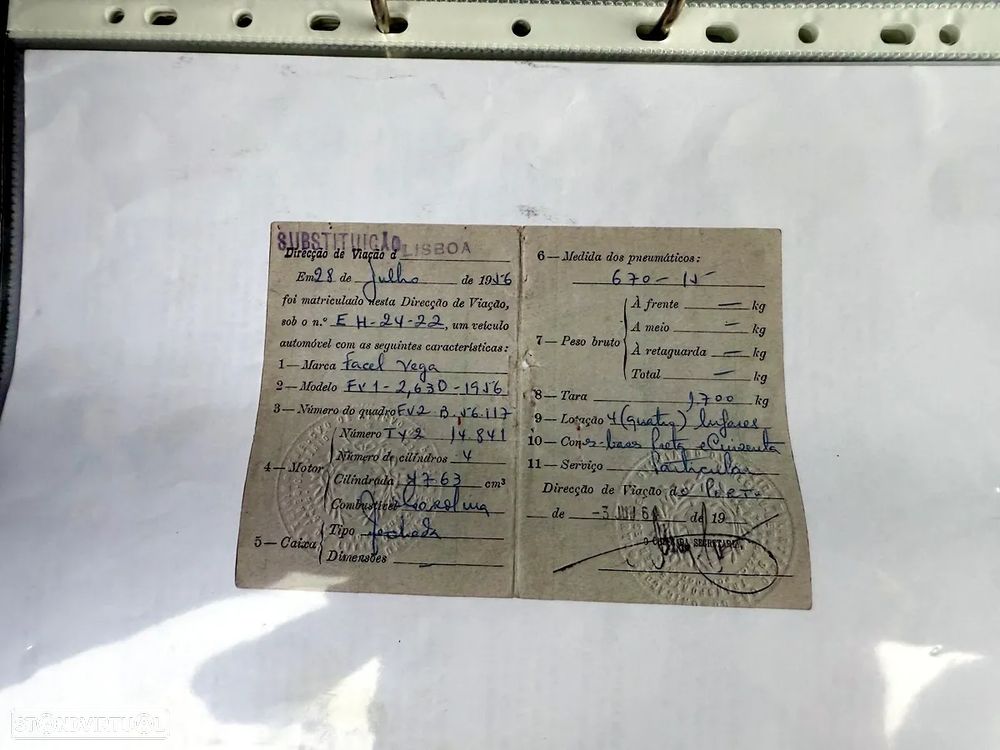 SUBSTITUIÇÃO
Direcção de Viação d LISBOA
Em 28 de Julho de 1956
foi matriculado nesta Direcção de Viação,
sob o n.º EH-24-22, um veículo
automóvel com as seguintes características:
1 — Marca Facel Vega
2 — Modelo FV1 - 2,630 - 1956
3 — Número do quadro FV2 B.56.117
4 — Motor
Número TY2 14.841
Número de cilindros 4
Cilindrada cm³
Combustível
5 — Caixa
Tipo Fechada
Dimensões
6 — Medida dos pneumáticos:
670 - 15
7 — Peso bruto
À frente — kg
A meio — kg
À retaguarda — kg
Total — kg
8 — Tara 1700 kg
9 — Lotação 4 (quatro) lugares
10 — Cor base preta e Cinzenta
11 — Serviço Particular
Direcção de Viação do Porto
de -3 de 19
STANDVIRTUAL